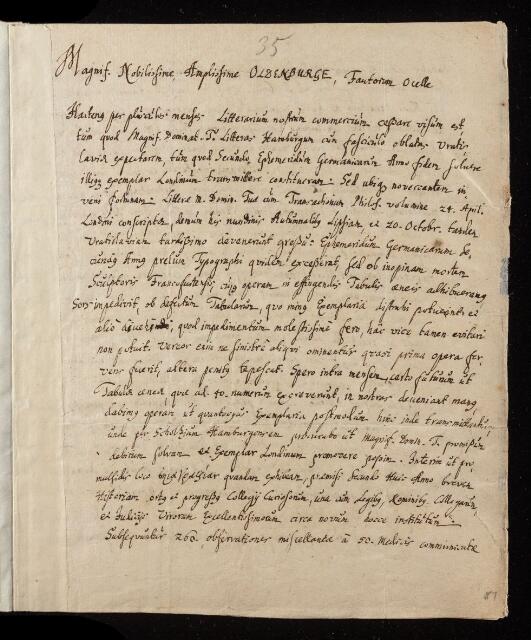 35
Magnif. Nobilissime Amplissime OLDENBURGE, Fautorum Ocelle
Hactenus per plusculos menses Litterarium nostrum commercium cessare visum est
tum quod Magnif. Dominat. T. Litteras Hamburgum cum fasciculo oblatas Uratis
laviæ expectarem, tum quod Secundo Ephemeridum Germanicarum Anno fidem solvere
illiusq exemplar Londinum transmittere constitueram. Sed ubiq novercantem in
veni fortunam. Litteræ M. Domin. Tuæ cum Transactionum Philos. volumine 24. April.
Londini conscriptæ demum his nundinis Autumnalib Lipsiam et 20. Octobr. tandem
Vratislaviam tardissimo devenerunt gressu. Ephemeridum Germanicarum Se,
cundus Annus prelum Typographi quidem excesserat, sed ob inopinam mortem
Sculptoris Francofurtensis cujus operam in effingendis Tabulis æneis adhibueramq
Sors impedivit, ob defectum Tabularum, quo minus Exemplaria distrahi potuerint et
alio, quod impedimentum molestissime fero, hac vice tamen evitari
non potuit. Vereor enim ne sinistre obiqui ominentur quasi prima opera fer,
vens fuerit, altera penitus tepescat. Spero intra mensem certo futurum ut
Tabulæ æneæ quæ ad 40. numerum excreverunt, in nostras deveniant manq
dabimq operam ut quantocyus Exemplaria postmodum hinc inde transmittantur,
unde per Scholtzium Hamburgensem procurabo ut Magnif. Domin. T. promissum
debitum solvam et Exemplar Londinum promovere possim. Interim ut pro,
mulsidis loco quandam exhibeam, præmisi Secundo Huic Anno brevem
Historiam ortq et progressq Collegii Curiosorum, una cum Legibq, Nominibq Collegarum,
et Judiciis Virorum Excellentissimorum circa novum hocce institutum.
Subsequuntur 260. observationes miscellaneæ a 50. Medicis communicatæ